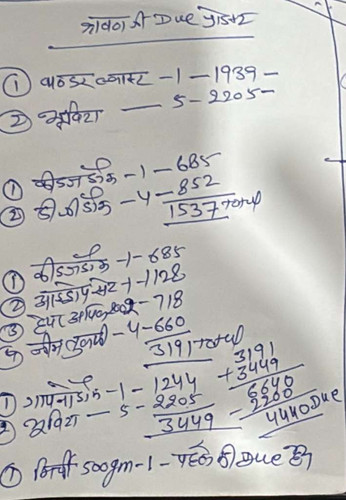 श्रावण जी Due प्रोडक्ट
① वन्डर ब्लास्ट - 1 - 1939 -
② न्यूविटा — 5 - 2205 -
① कीडजडॉक - 1 - 685
② डी जी डॉक - 4 - 852
1537 total
① कीडजडॉक - 1 - 685
② आईड्रोप सेट - 1 - 1128
③ हेयर ऑयल 200 - 718
4 नीम तुलसी - 4 - 660
3191 total
① गायनोडॉक - 1 - 1244
2 न्यूविटा — 5 - 2205
3449
3191
+ 3449
6640
- 2200
4440 Due
① मिर्ची 500gm - 1 - पहले की Due है